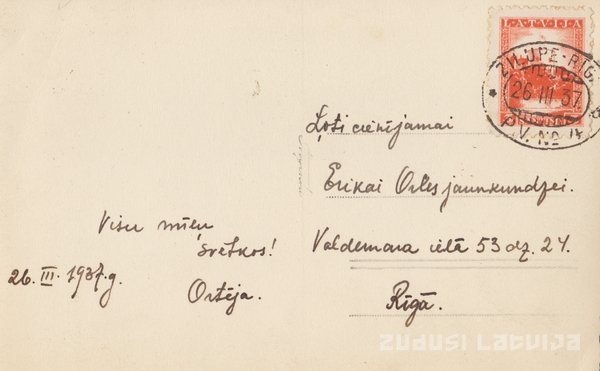 LATVIJA
ZILUPE-RĪG.
26 III 37
P.V. № 4
Ļoti cienījamai
Erikai Orles jaunkundzei.
Valdemara ielā 53 dz. 24.
Rīgā.
Visu mīļu
svētkos!
26. III. 1937.g.
Ortēja.
ZUDUSI LATVIJA